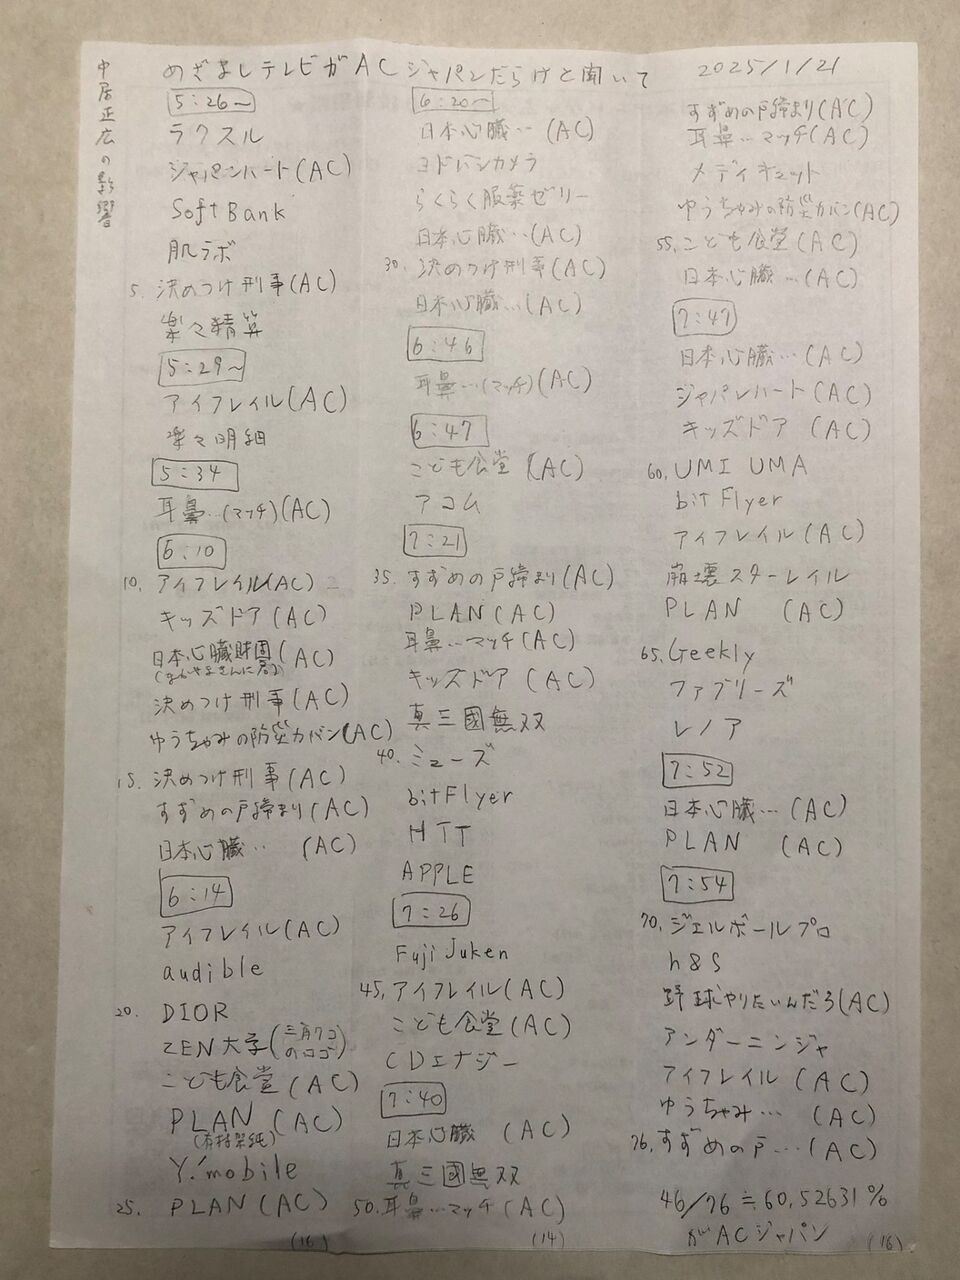 中居正広の影響
めざましテレビがACジャパンだらけと聞いて
2025/1/21
5:26〜
ラクスル
ジャパンハート(AC)
SoftBank
肌ラボ
5. 決めつけ刑事(AC)
楽々精算
5:29〜
アイフレイル(AC)
楽々明細
5:34
耳鼻…(マッチ)(AC)
6:10
10. アイフレイル(AC)
キッズドア(AC)
日本心臓財団(AC)
(なかやまきんに君)
決めつけ刑事(AC)
ゆうちゃみの防災カバン(AC)
15. 決めつけ刑事(AC)
すずめの戸締まり(AC)
日本心臓… (AC)
6:14
アイフレイル(AC)
audible
20. DIOR
ZEN大学(三角タコのロゴ)
こども食堂(AC)
PLAN(AC)
(有村架純)
Y!mobile
25. PLAN(AC)
(16)
6:20〜
日本心臓… (AC)
ヨドバシカメラ
らくらく服薬ゼリー
日本心臓…(AC)
30. 決めつけ刑事(AC)
日本心臓…(AC)
6:46
耳鼻…(マッチ)(AC)
6:47
こども食堂(AC)
アコム
7:21
35. すずめの戸締まり(AC)
PLAN(AC)
耳鼻…マッチ(AC)
キッズドア(AC)
真三國無双
40. ミューズ
bitFlyer
HTT
APPLE
7:26
Fuji Juken
45. アイフレイル(AC)
こども食堂(AC)
CDエナジー
7:40
日本心臓 (AC)
真三國無双
50. 耳鼻…マッチ(AC)
(14)
すずめの戸締まり(AC)
耳鼻…マッチ(AC)
メディキュット
ゆうちゃみの防災カバン(AC)
55. こども食堂(AC)
日本心臓…(AC)
7:47
日本心臓…(AC)
ジャパンハート(AC)
キッズドア(AC)
60. UMI UMA
bitFlyer
アイフレイル(AC)
崩壊スターレイル
PLAN (AC)
65. Geekly
ファブリーズ
レノア
7:52
日本心臓…(AC)
PLAN (AC)
7:54
70. ジェルボールプロ
h&S
野球やりたいんだろ(AC)
アンダーニンジャ
アイフレイル(AC)
ゆうちゃみ… (AC)
76. すずめの戸…(AC)
46/76≒60,52631%
がACジャパン
(16)